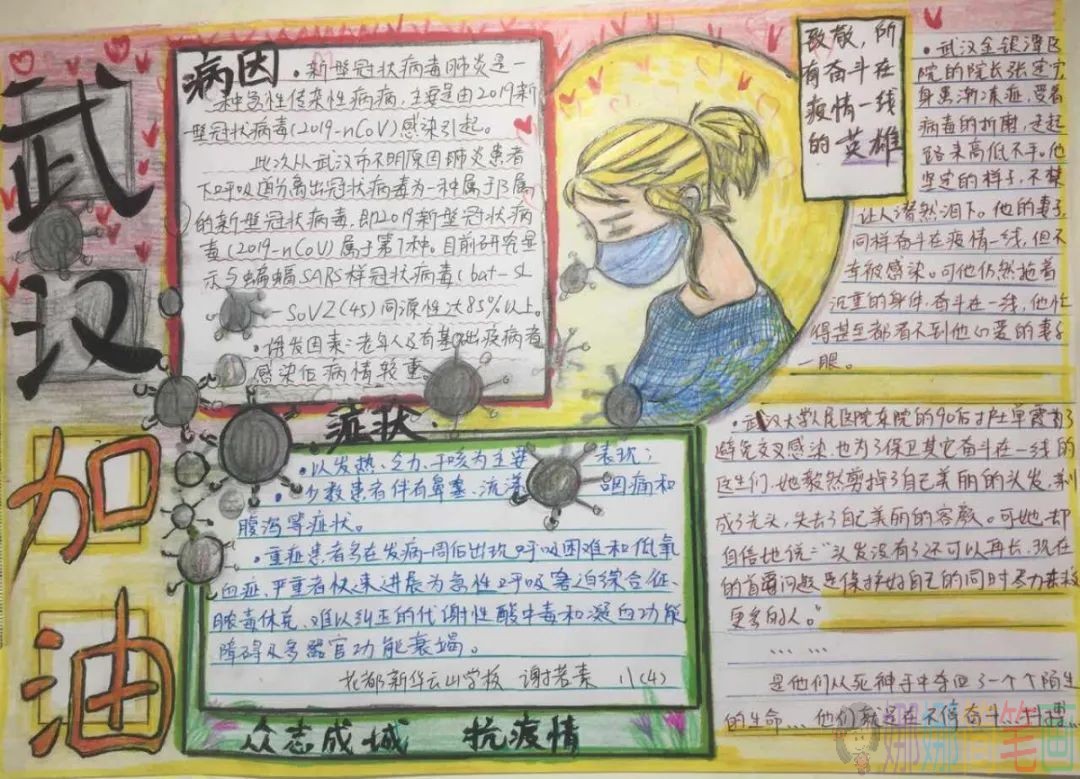 武
汉
加
油
病因
•新型冠状病毒肺炎是一
种急性传染性疾病，主要是由2019新
型冠状病毒(2019-nCoV)感染引起。
此次从武汉市不明原因肺炎患者
下呼吸道分离出冠状病毒为一种属于β属
的新型冠状病毒，即2019新型冠状病
毒(2019-nCoV)属于第7种。目前研究显
示与蝙蝠SARS样冠状病毒(bat-SL
-SoVZ(45)同源性达85%以上。
•诱发因素：老年人及有基础疾病者
感染后病情较重。
症状
•以发热、乏力、干咳为主要表现；
•少数患者伴有鼻塞、流涕 咽痛和
腹泻等症状。
•重症患者多在发病一周后出现呼吸困难和低氧
血症，严重者快速进展为急性呼吸窘迫综合征、
脓毒休克、难以纠正的代谢性酸中毒和凝血功能
障碍及多器官功能衰竭。
花都新华云山学校 谢若素 八(4)
众志成城 抗疫情
致敬，所
有奋斗在
疫情一线
的英雄
•武汉金银潭医
院的院长张定宇
身患渐冻症，受着
病毒的折磨，走起
路来高低不平。他
坚定的样子，不禁
让人潸然泪下。他的妻子，
同样奋斗在疫情一线，但不
幸被感染。可他仍然拖着
沉重的身体，奋斗在一线，他忙
得甚至都看不到他心爱的妻子
一眼。
•武汉大学人民医院东院的90后护士单霞为了
避免交叉感染，也为了保卫其它奋斗在一线的
医生们，她毅然剪掉了自己美丽的头发，剃
成了光头，失去了自己美丽的容颜。可她却
自信地说：“头发没有了还可以再长，现在
的首要问题是保护好自己的同时尽力去救
更多的人。”
… …
是他们从死神手中夺回了一个个陌生
的生命…他们就是在不停奋斗
娜娜简笔画